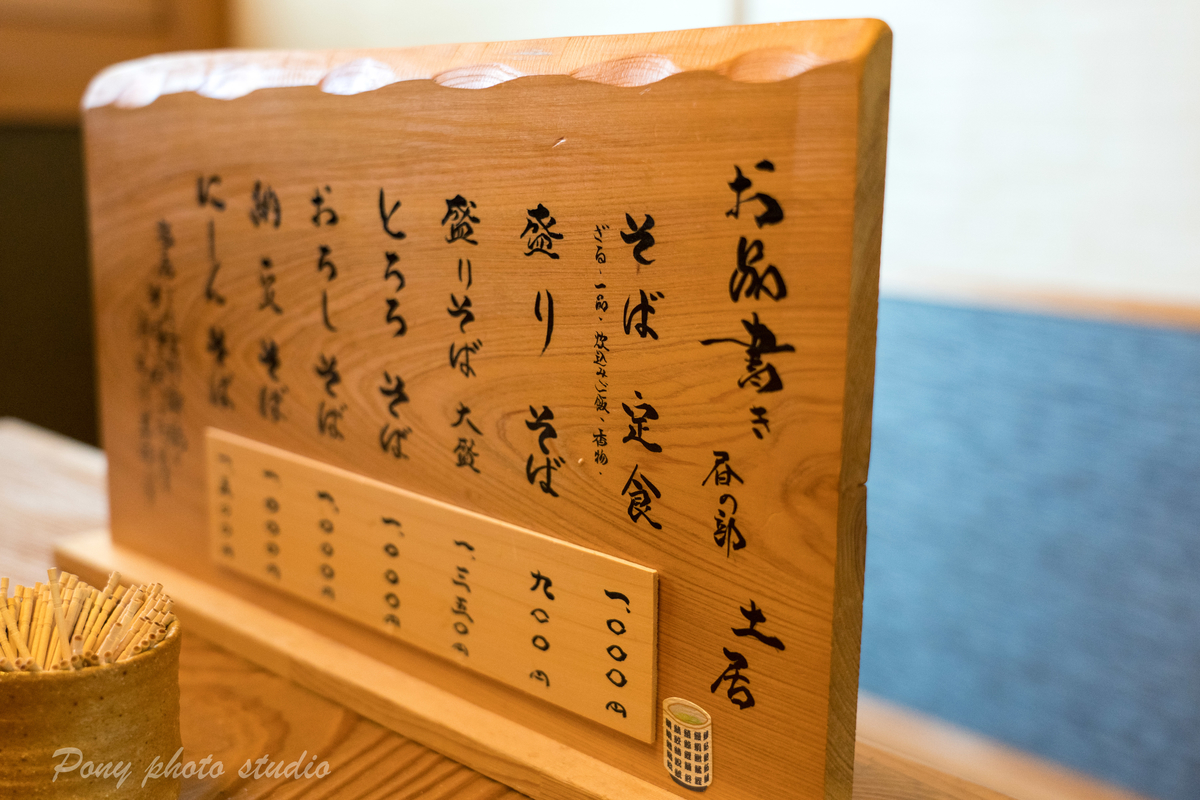 お品書き 昼の部 土居
そば定食
ざる、一品、炊込みご飯、香物、
盛りそば
盛りそば 大盛
とろろ そば
おろし そば
納豆 そば
にしん そば
一、000円
九00円
一、三五0円
一、000円
一、000円
一、000円
Pony photo studio